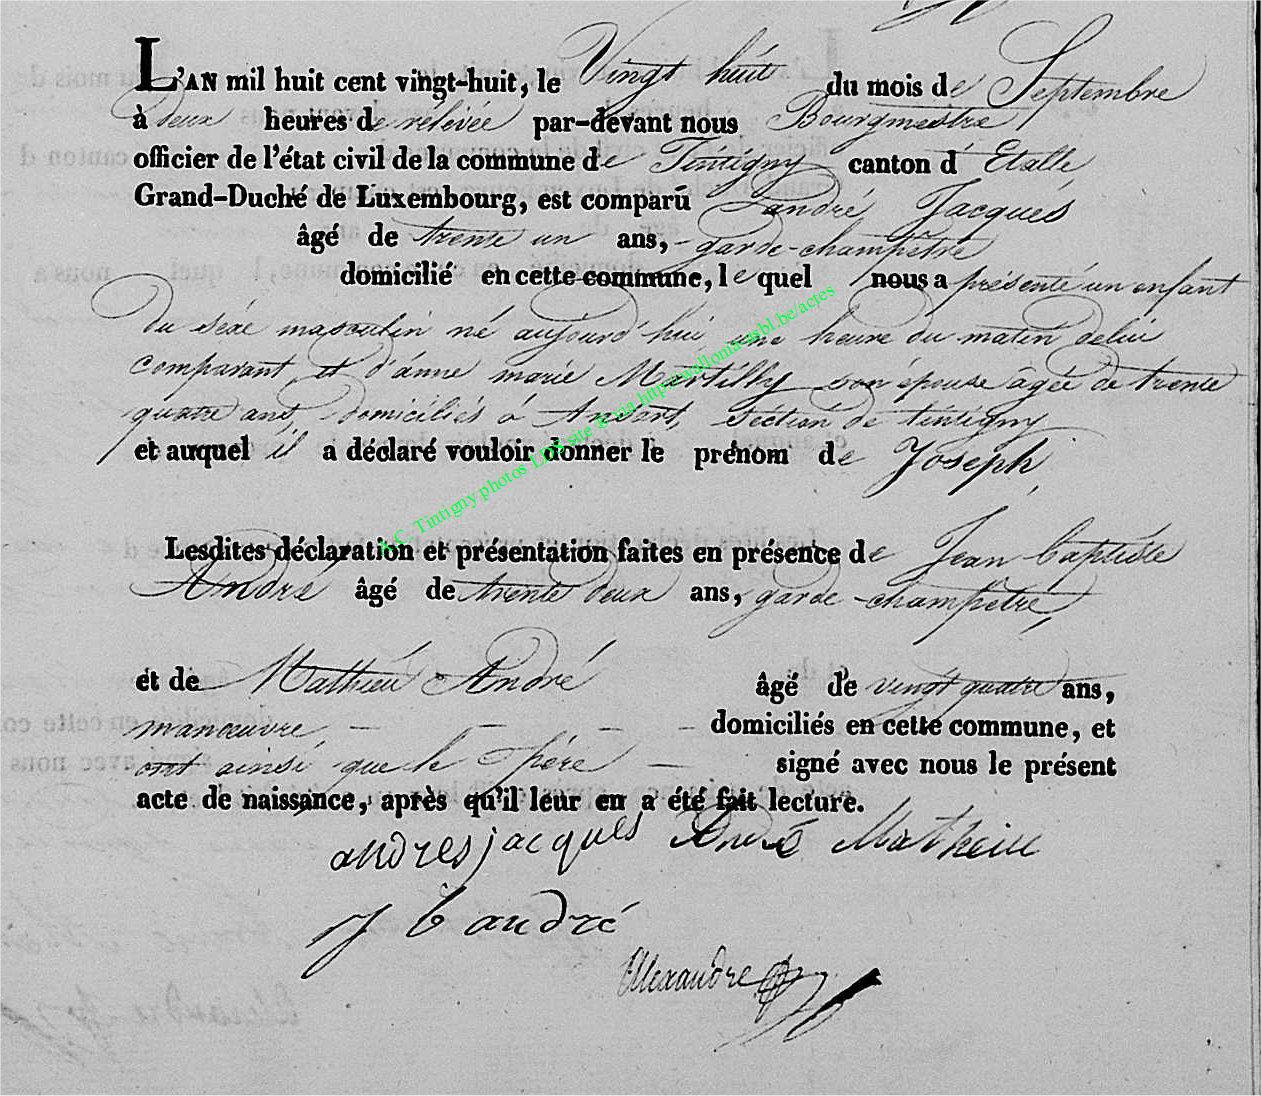 L'AN mil huit cent vingt-huit, le Vingt huit du mois de Septembre
à deux heures de relevée par-devant nous Bourgmestre
officier de l'état civil de la commune de Tintigny canton d'Etalle
Grand-Duché de Luxembourg, est comparu andré Jacques
âgé de trente un ans, - garde-champêtre
domicilié en cette commune, le quel nous a présenté un enfant
du sexe masculin né aujourd'hui une heure du matin de lui
comparant, et d'anne marie son épouse âgée de trente
quatre ans, domiciliés à Ansart, section de tintigny
et auquel il a déclaré vouloir donner le prénom de Joseph,
A.C. Tintigny photos LDS site via http://wallonia-asbl.be/actes
Lesdites déclaration et présentation faites en présence de Jean baptiste
André âgé de trente deux ans, garde-champêtre,
et de Mathieu André âgé de vingt quatre ans,
manœuvre - - - - domiciliés en cette commune, et
ont ainsi que le père - signé avec nous le présent
acte de naissance, après qu'il leur en a été fait lecture.
andres jacques André Matheiu
J b andré
Alexandre